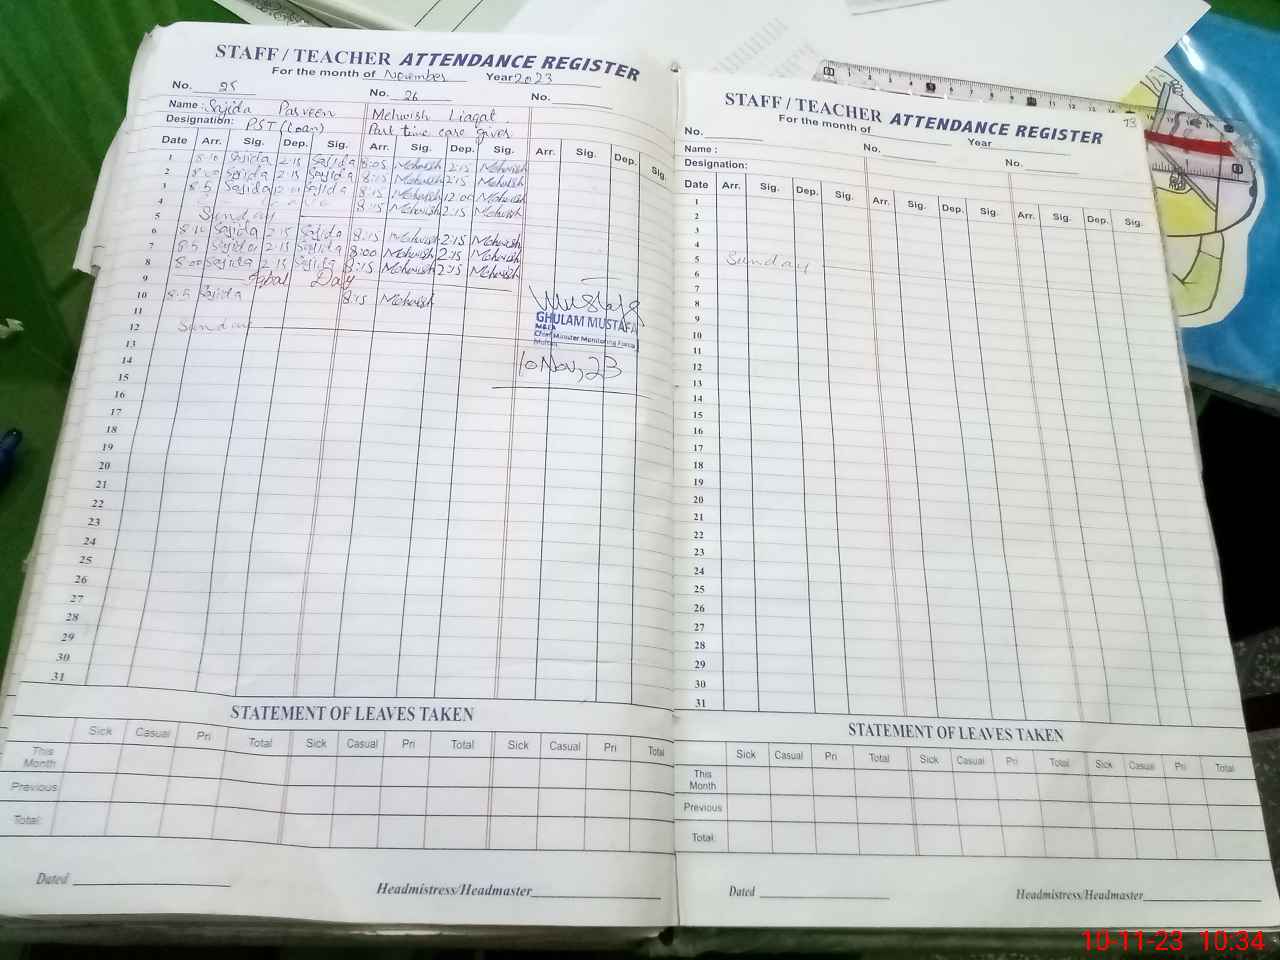 STAFF / TEACHER ATTENDANCE REGISTER
For the month of November Year 2023
No. 25 No. 26 No.
Name : Sajida Parveen Mehwish Liaqat.
Designation: PST (Loan) Part time care giver
Date Arr. Sig. Dep. Sig. Arr. Sig. Dep. Sig. Arr. Sig. Dep. Sig.
1 8:10 Sajida 2:15 Sajida 8:05 Mehwish 2:15 Mehwish
2 8:00 Sajida 2:15 Sajida 8:15 Mehwish 2:15 Mehwish
3 8:5 Sajida Sajida 8:15 Mehwish 12:00 Mehwish
4 8:15 Mehwish 2:15 Mehwish
5 Sunday
6 8:10 Sajida 2:15 Sajida 8:15 Mehwish 2:15 Mehwish
7 8:5 Sajida 2:15 Sajida 8:00 Mehwish 2:15 Mehwish
8 8:00 Sajida 2:15 Sajida 8:15 Mehwish 2:15 Mehwish
9 Iqbal Day
10 8:5 Sajida 8:15 Mehwish
11
12 Sunday
13
14
15
16
17
18
19
20
21
22
23
24
25
26
27
28
29
30
31
Mustafa
GHULAM MUSTAFA
M&EA
Chief Minister Monitoring Force
Multan
10 Nov, 23
STATEMENT OF LEAVES TAKEN
Sick Casual Pri Total Sick Casual Pri Total Sick Casual Pri Total
This Month
Previous
Total:
Dated Headmistress/Headmaster
73
STAFF / TEACHER ATTENDANCE REGISTER
For the month of Year
No. No. No.
Name :
Designation:
Date Arr. Sig. Dep. Sig. Arr. Sig. Dep. Sig. Arr. Sig. Dep. Sig.
1
2
3
4
5 Sunday
6
7
8
9
10
11
12
13
14
15
16
17
18
19
20
21
22
23
24
25
26
27
28
29
30
31
STATEMENT OF LEAVES TAKEN
Sick Casual Pri Total Sick Casual Pri Total Sick Casual Pri Total
This Month
Previous
Total:
Dated Headmistress/Headmaster
10-11-23 10:34